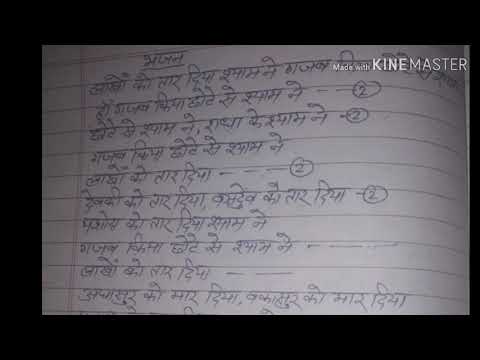 Made with KINEMASTER
भजन
लाखों को तार दिया श्याम ने गजब किया छोटे से श्याम
हो गजब किया छोटे से श्याम ने - - - ②
छोटे से श्याम ने, राधा के श्याम ने -②
गजब किया छोटे से श्याम ने
लाखों को तार दिया - - - - ②
देवकी को तार दिया, वसुदेव को तार दिया -②
यशोदा को तार दिया श्याम ने
गजब किया छोटे से श्याम ने - - - -
लाखों को तार दिया - - -
अघासुर को मार दिया, बकासुर को मार दिया